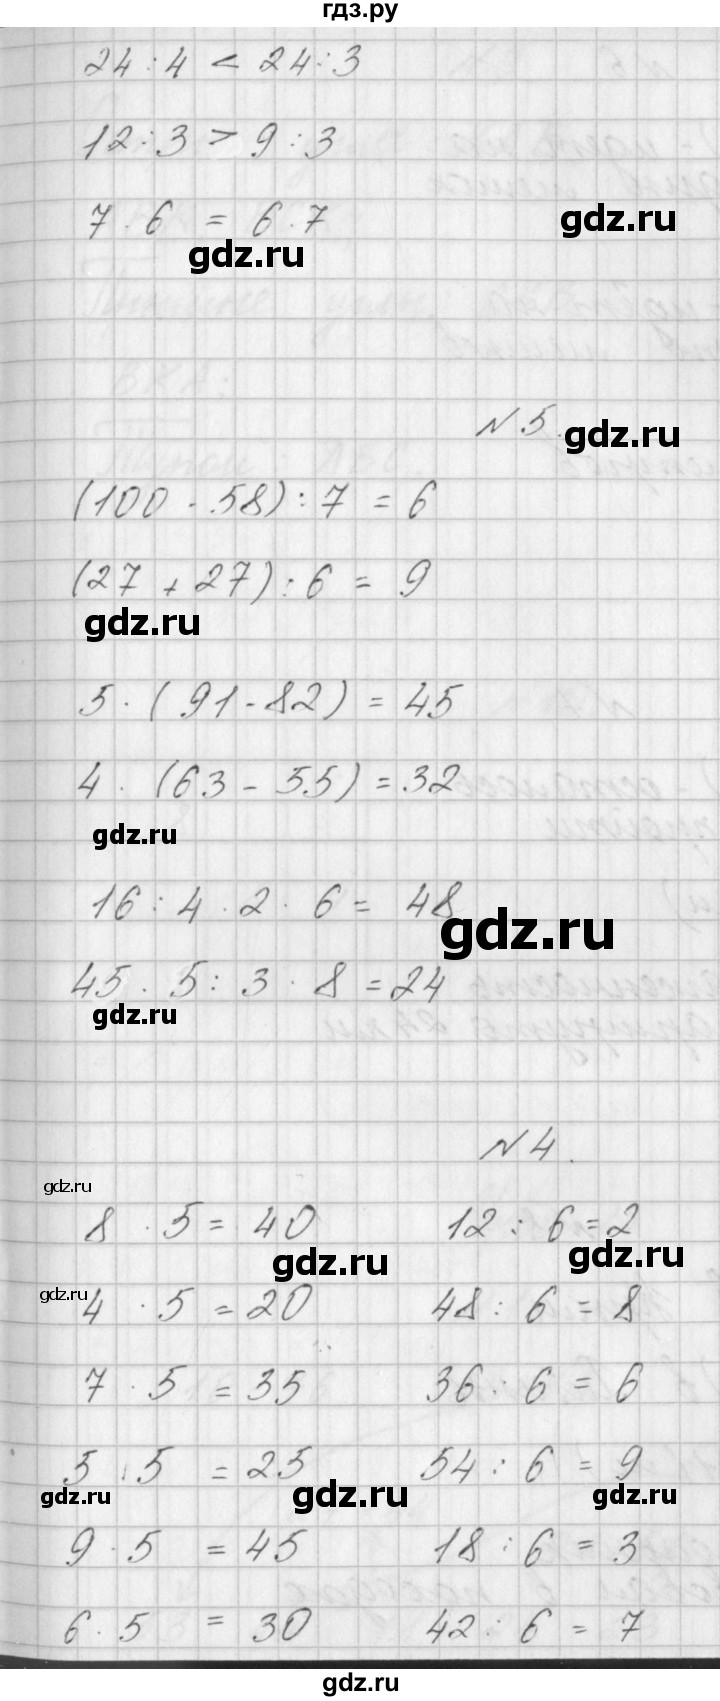 гдз.ру
24 : 4 < 24 : 3
12 : 3 > 9 : 3
7 · 6 = 6 · 7
gdz.ru
gdz.ru
N 5.
gdz.ru
(100 - 58) : 7 = 6
(27 + 27) : 6 = 9
gdz.ru
5 · (91 - 82) = 45
4 · (63 - 55) = 32
gdz.ru
16 : 4 · 2 · 6 = 48
gdz.ru
45 · 5 : 3 · 8 = 24
gdz.ru
N 4.
gdz.ru
8 · 5 = 40 12 : 6 = 2
gdz.ru gdz.ru
gdz.ru
4 · 5 = 20 48 : 6 = 8
7 · 5 = 35 36 : 6 = 6
5 · 5 = 25 54 : 6 = 9
gdz.ru gdz.ru gdz.ru
9 · 5 = 45 18 : 6 = 3
6 · 5 = 30 42 : 6 = 7
gdz.ru